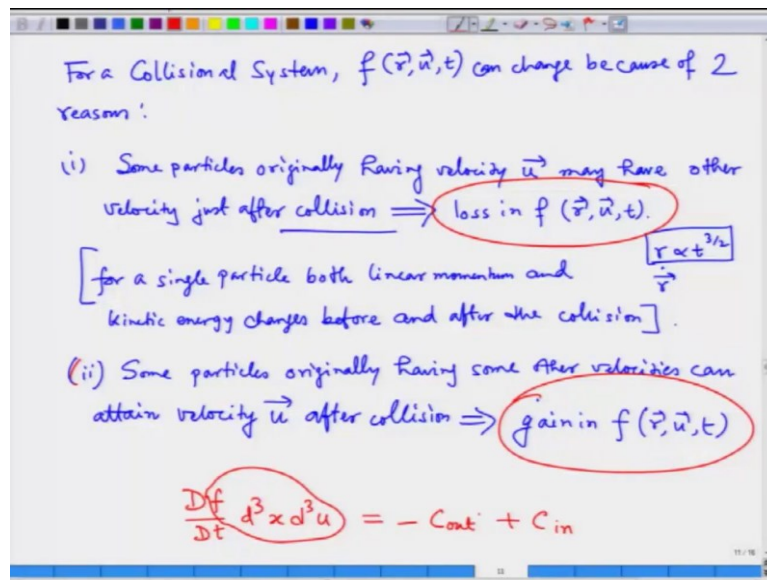 For a Collisional System, f(r⃗,u⃗,t) can change because of 2
reasons:
(i) Some particles originally having velocity u⃗ may have other
velocity just after collision ⟹ loss in f(r⃗,u⃗,t).
r ∝ t^3/2
ṙ⃗
[for a single particle both linear momentum and
kinetic energy changes before and after the collision].
(ii) Some particles originally having some other velocities can
attain velocity u⃗ after collision ⟹ gain in f(r⃗,u⃗,t)
Df/Dt d³x d³u = - Cout + Cin
11/16